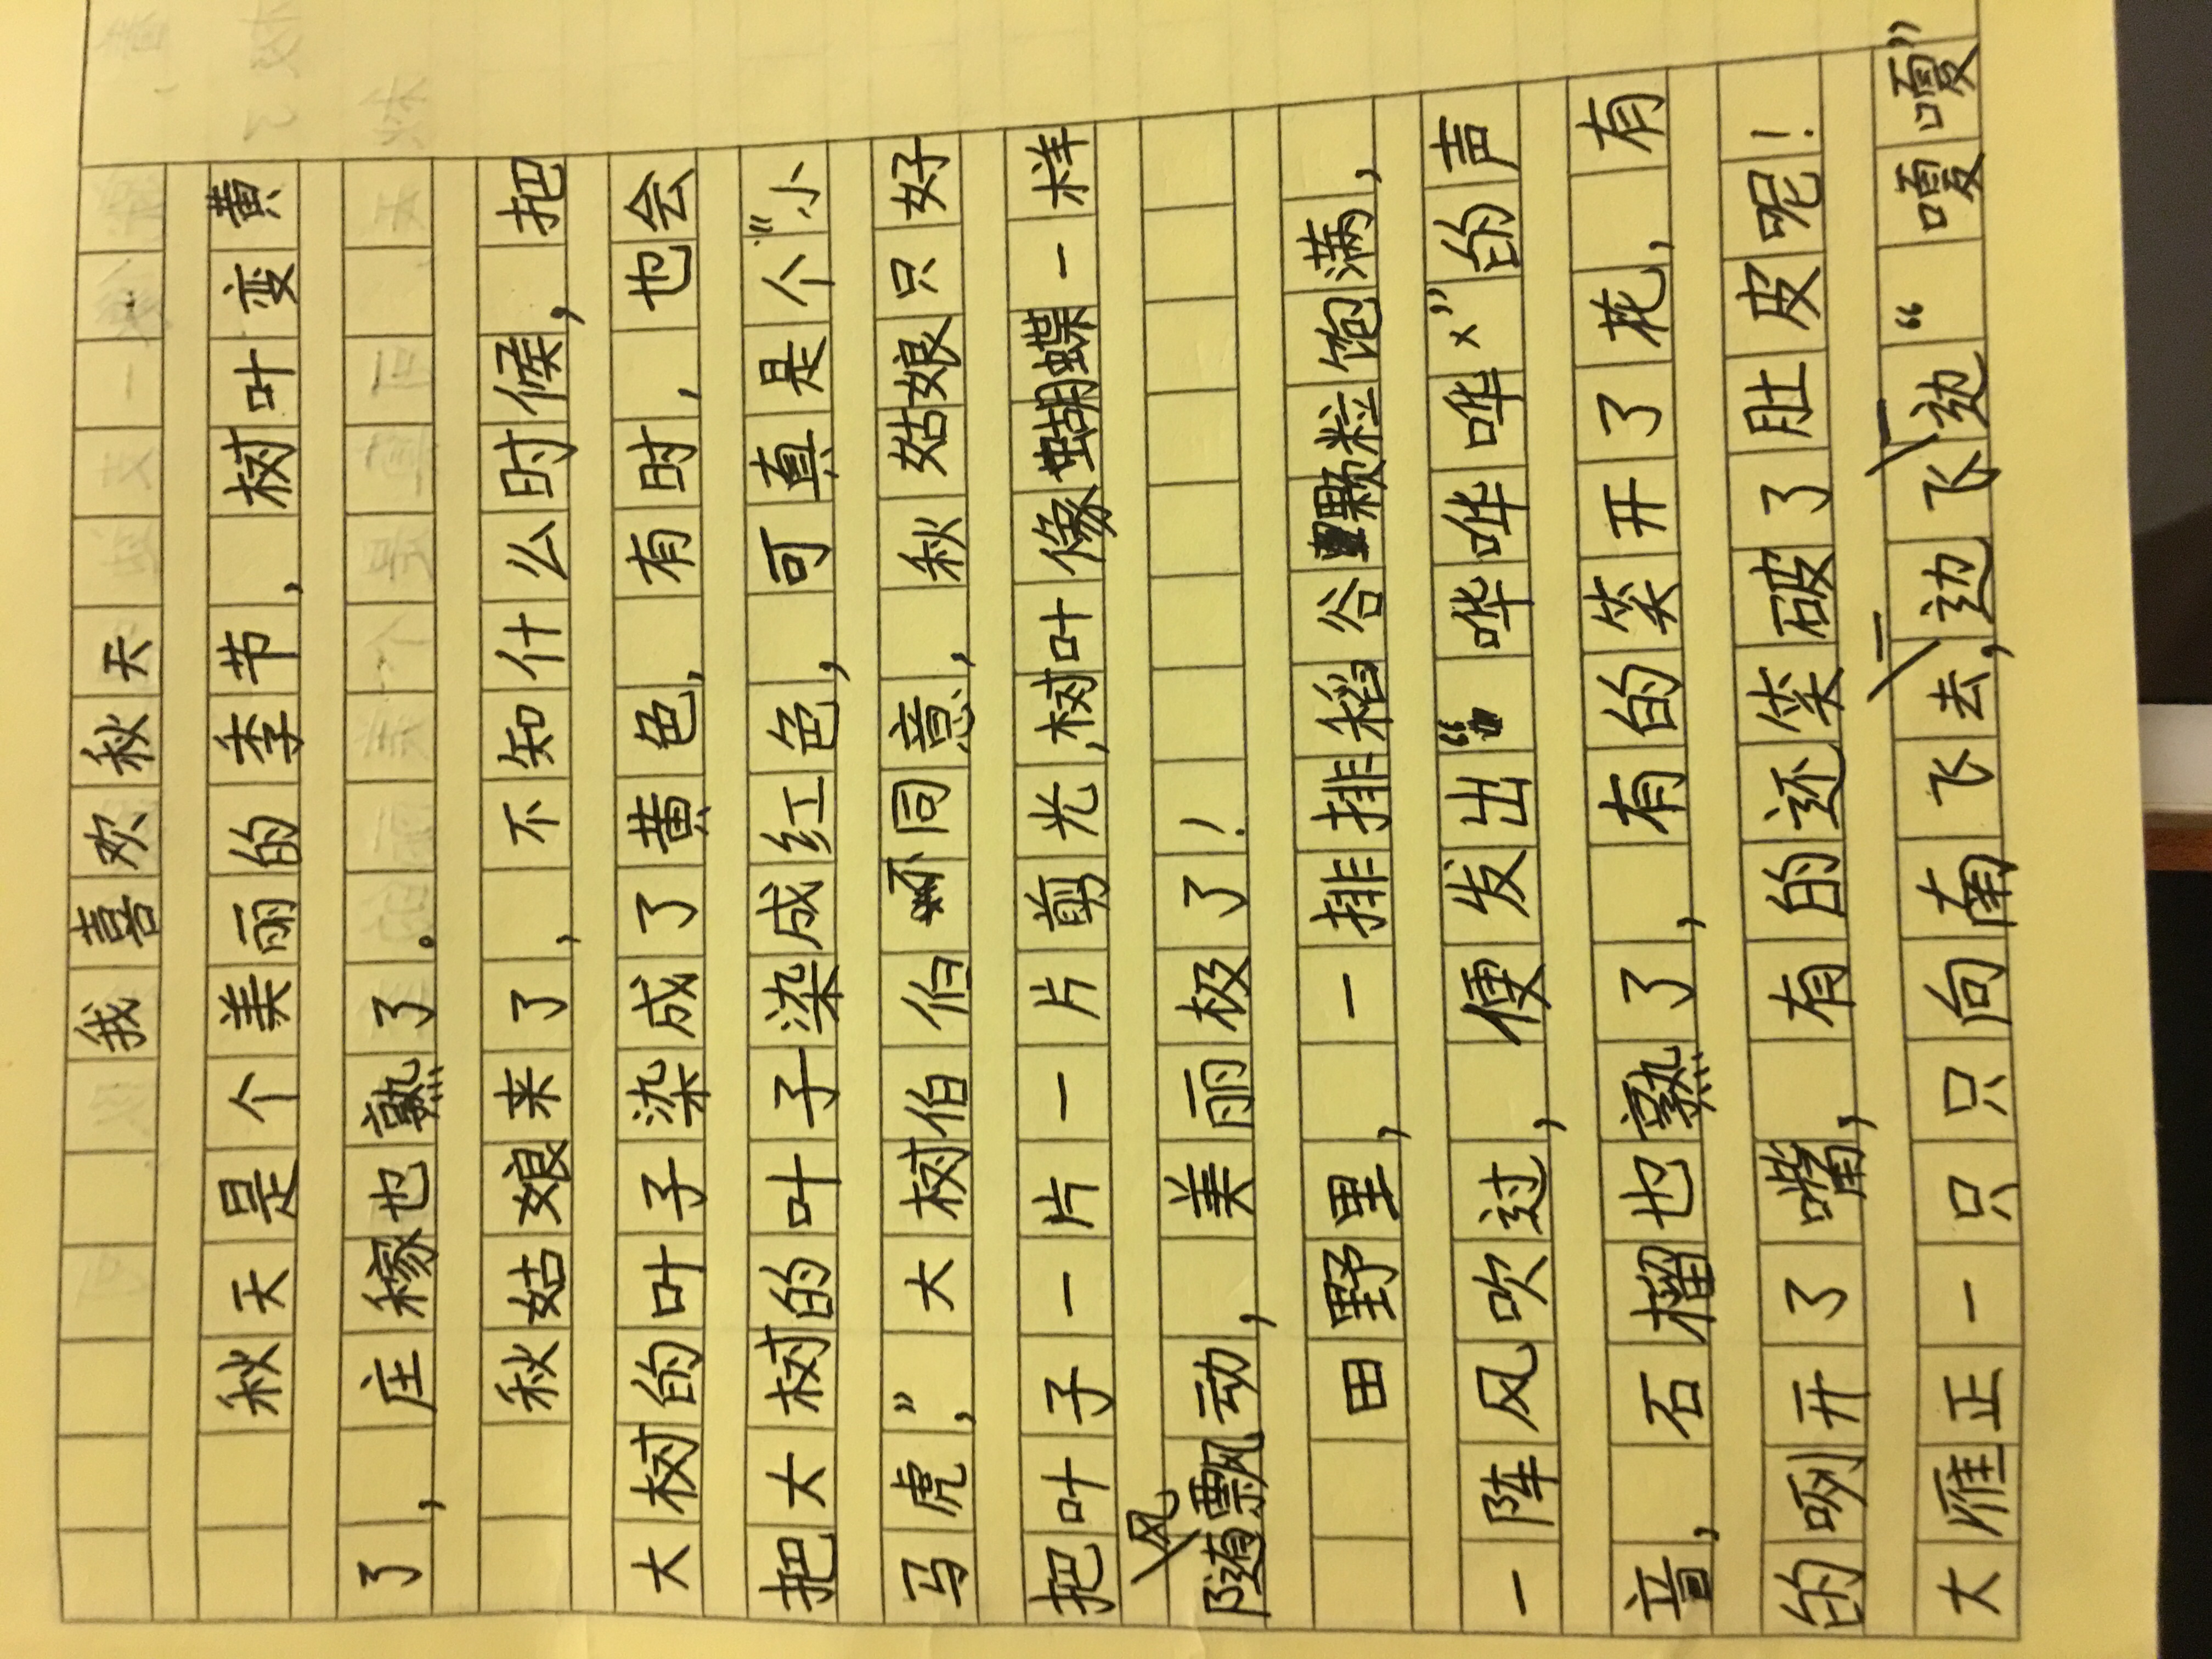 我喜欢秋天
秋天是个美丽的季节，树叶变黄
了，庄稼也熟了。
秋姑娘来了，不知什么时候，把
大树的叶子染成了黄色，有时，也会
把大树的叶子染成红色，可真是个“小
马虎”，大树伯伯不同意，秋姑娘只好
把叶子一片一片剪光，树叶像蝴蝶一样
随风飘动，美丽极了！
田野里，一排排稻谷颗粒饱满，
一阵风吹过，便发出“哗哗哗”的声
音，石榴也熟了，有的笑开了花，有
的咧开了嘴，有的还笑破了肚皮呢！
大雁正一只只向南飞去，边飞边“嘎嘎”